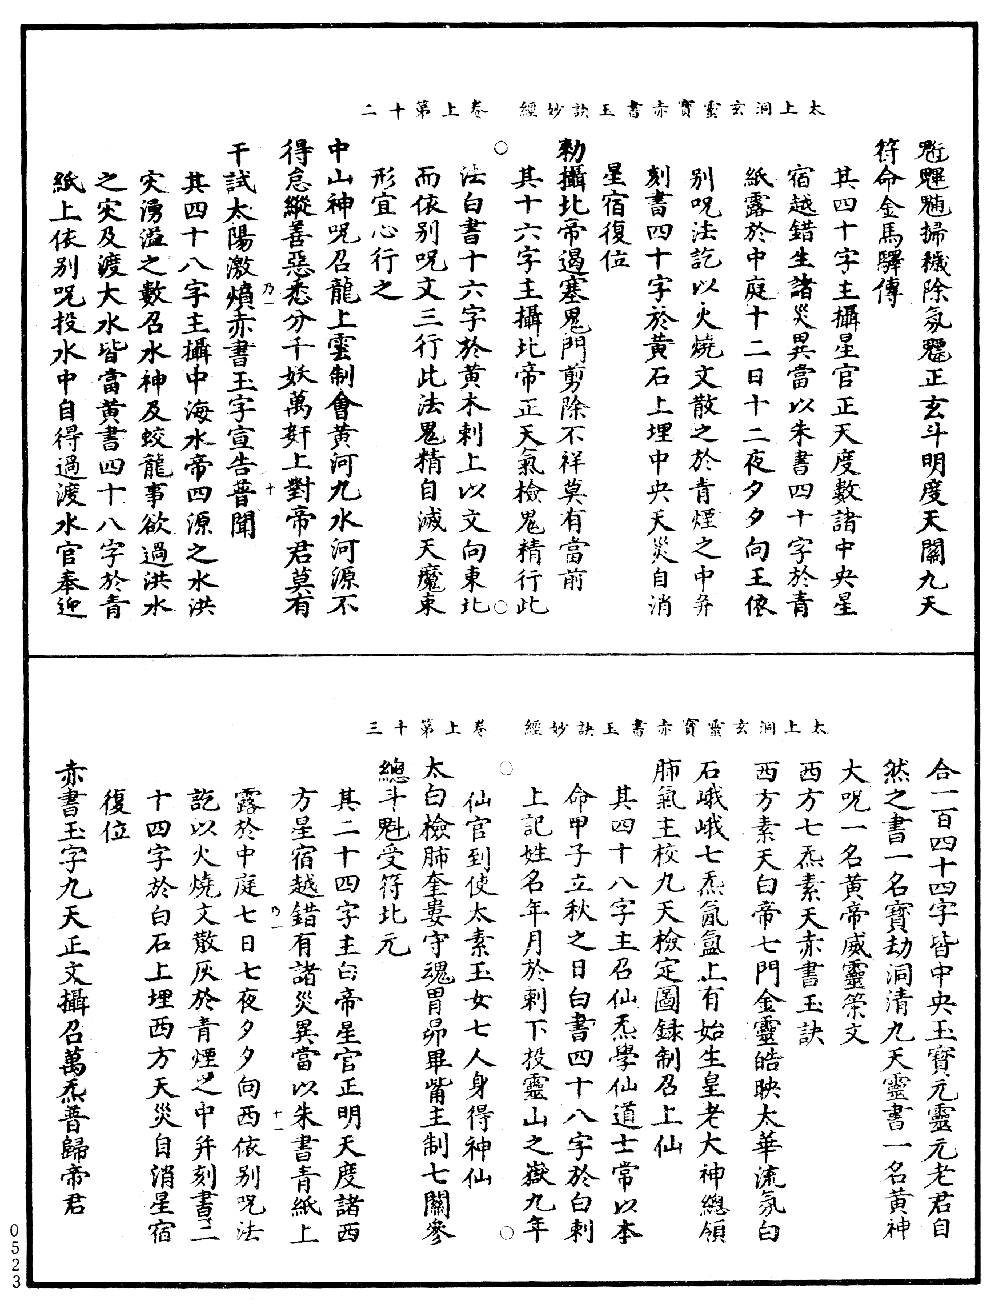 太上洞玄靈寶赤書玉訣妙經　卷上第十二
魁𩲃魓掃穢除氛魒正玄斗明度天關九天
符命金馬驛傳
其四十字主攝星官正天度數諸中央星
宿越錯生諸災異當以朱書四十字於青
紙露於中庭十二日十二夜夕夕向王依
別呪法訖以火燒文散之於青煙之中并
刻書四十字於黃石上埋中央天災自消
星宿復位
勑攝北帝遏塞鬼門剪除不祥莫有當前
其十六字主攝北帝正天氣檢鬼精行此
法白書十六字於黃木刺上以文向東北
而依別呪文三行此法鬼精自滅天魔束
形宜心行之
中山神呪召龍上雲制會黃河九水河源不
得怠縱善惡悉分千妖萬奸上對帝君莫有
乃一　十
干試太陽激熵赤書玉字宣告普聞
其四十八字主攝中海水帝四源之水洪
災湧溢之數召水神及蛟龍事欲過洪水
之災及渡大水皆當黃書四十八字於青
紙上依別呪投水中自得過渡水官奉迎
太上洞玄靈寶赤書玉訣妙經　卷上第十三
合一百四十四字皆中央玉寶元靈元老君自
然之書一名寶劫洞清九天靈書一名黃神
大呪一名黃帝威靈策文
西方七炁素天赤書玉訣
西方素天白帝七門金靈皓映太華流氛白
石峨峨七炁氤氳上有始生皇老大神總領
肺氣主校九天檢定圖錄制召上仙
其四十八字主召仙炁學仙道士常以本
命甲子立秋之日白書四十八字於白刺
上記姓名年月於刺下投靈山之嶽九年
仙官到使太素玉女七人身得神仙
太白檢肺奎婁守魂胃昴畢觜主制七關參
總斗魁受符北元
其二十四字主白帝星官正明天度諸西
方星宿越錯有諸災異當以朱書青紙上
乃一　十一
露於中庭七日七夜夕夕向西依別呪法
訖以火燒文散灰於青煙之中并刻書二
十四字於白石上埋西方天災自消星宿
復位
赤書玉字九天正文攝召萬炁普歸帝君
0523